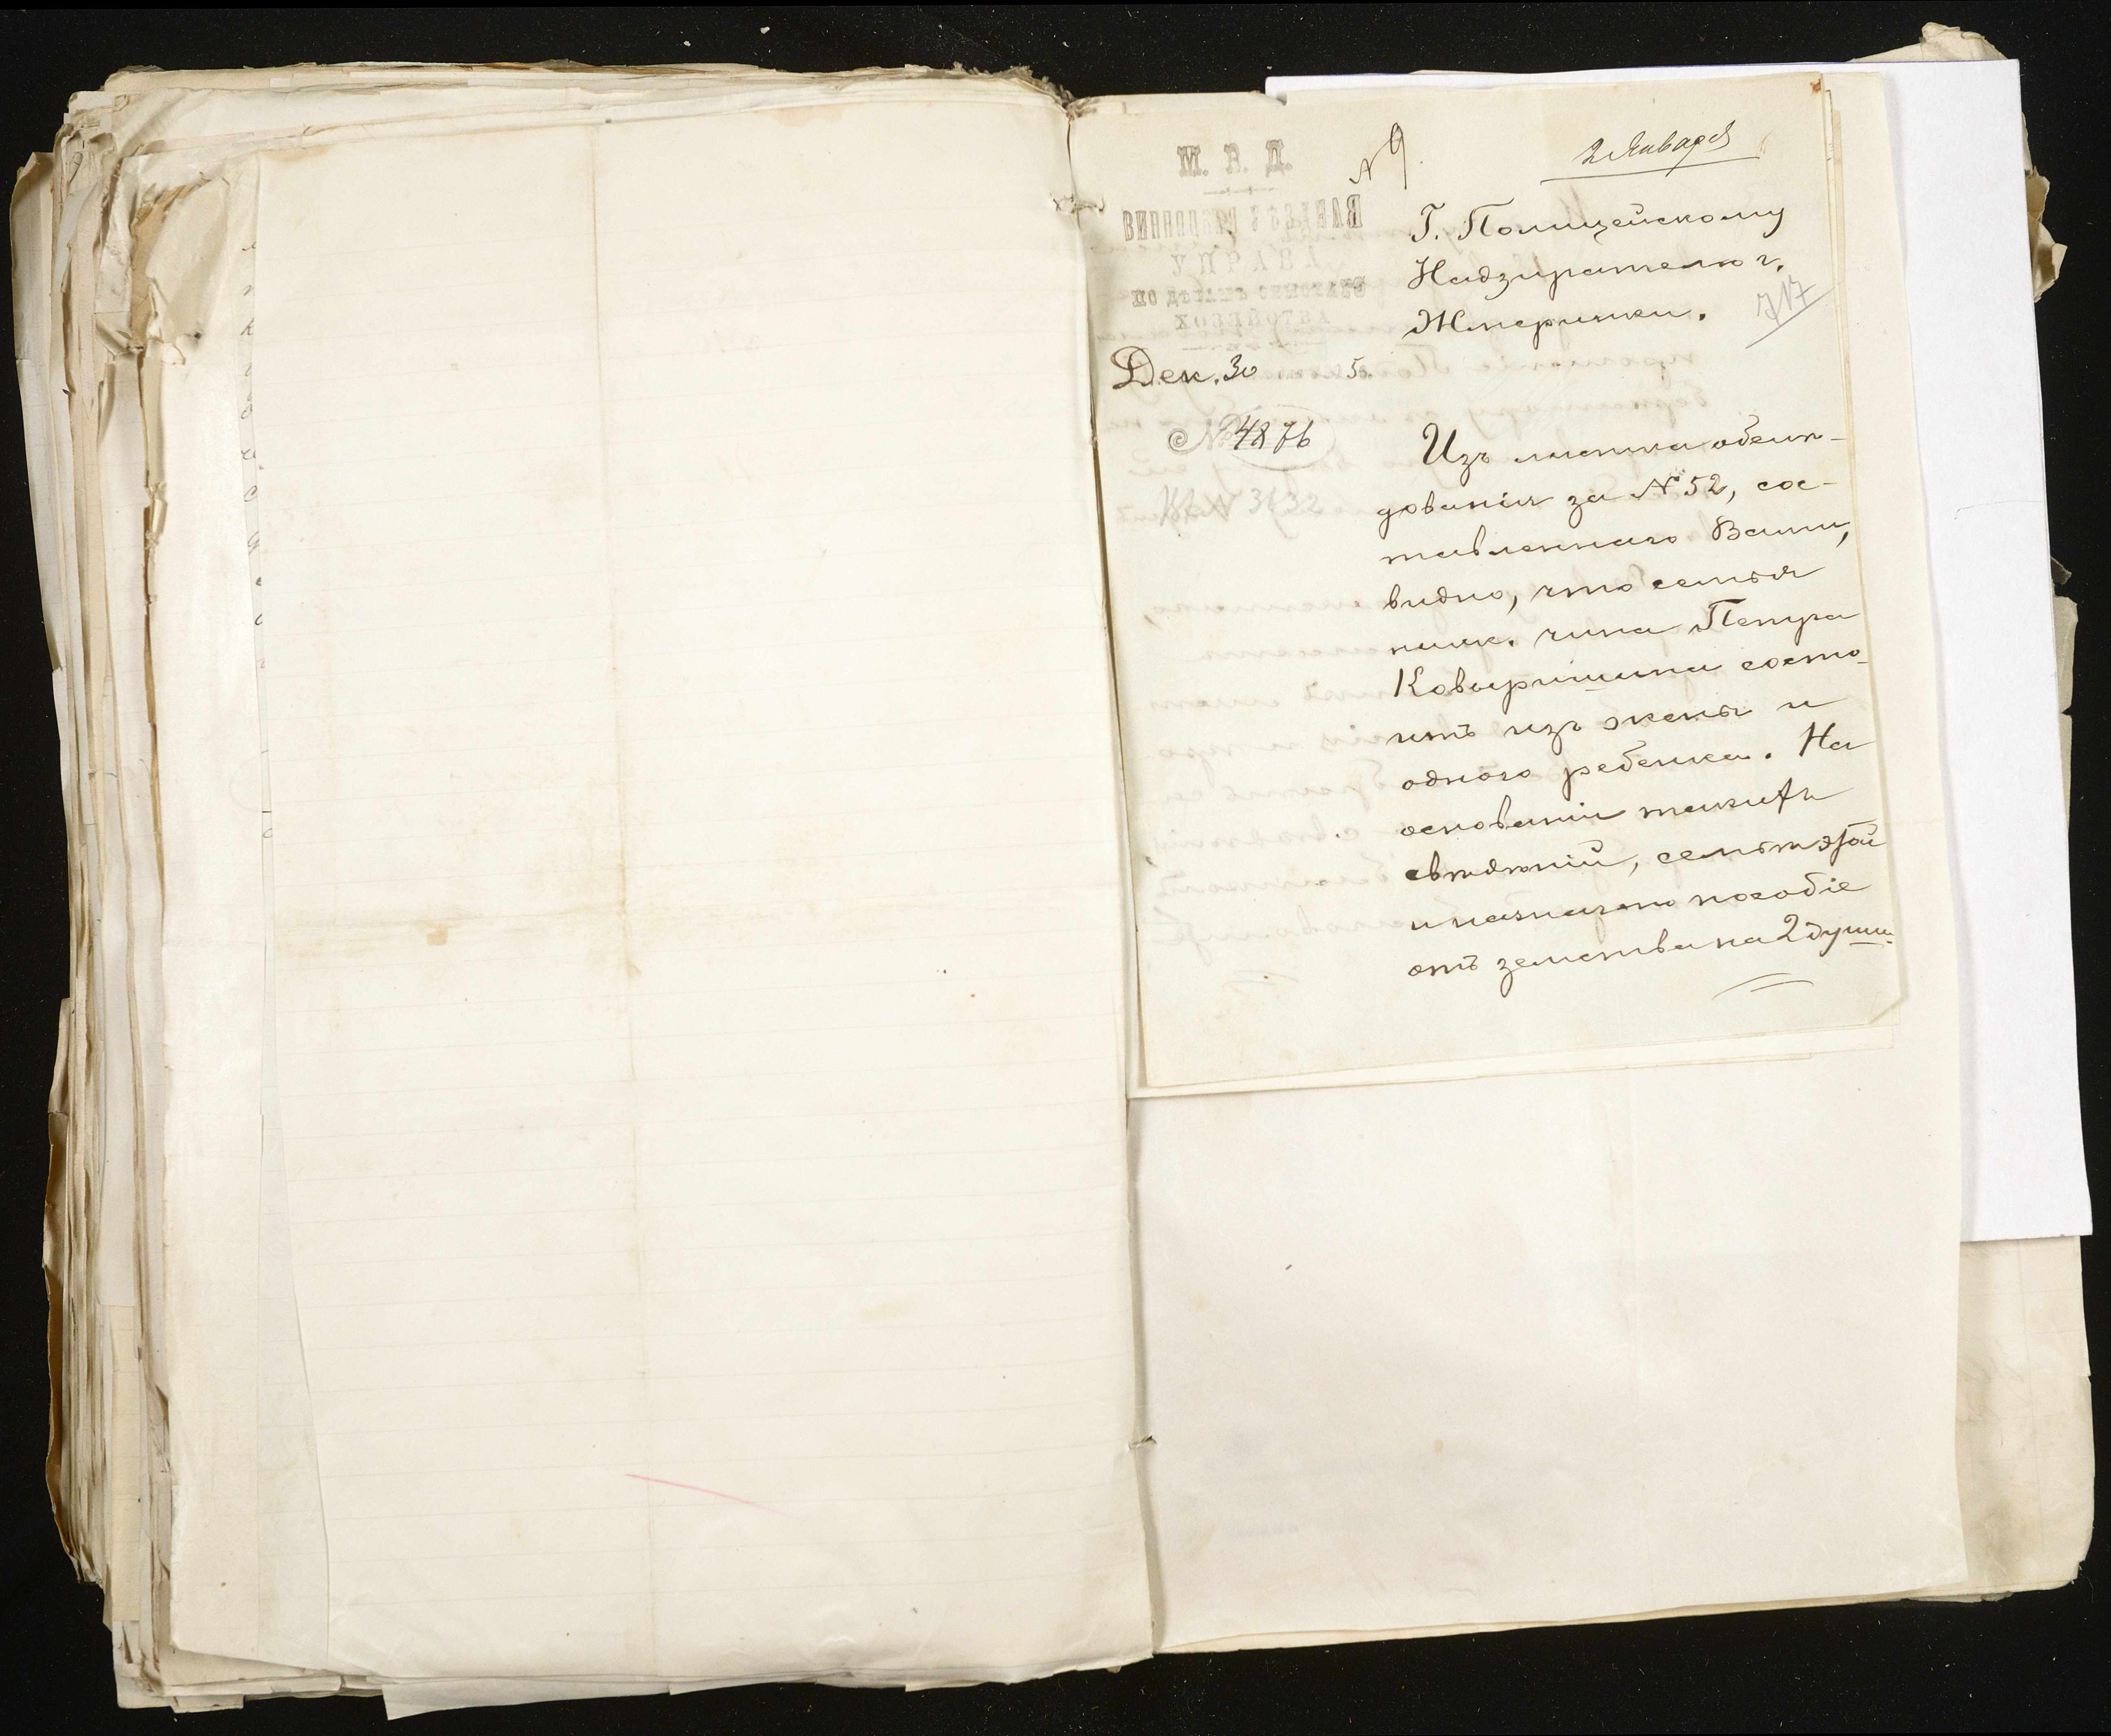 М. В. Д.
ВИННИЦКАЯ УѢЗДНАЯ
УПРАВА
ПО ДѢЛАМЪ ЗЕМСКАГО
ХОЗЯЙСТВА
Дек. 30 5
№ 4876
№ 9.
2 Января
Г. Полицейскому
Надзирателю г.
Жмеринки.
717
Изъ листка обслѣ-
дованія за № 52, сос-
тавленнаго Вами,
видно, что семья
нижн. чина Петра
Коваришина состо-
итъ изъ жены и
одного ребенка. На
основаніи такихъ
свѣдѣній, семьѣ этой
и назначено пособіе
отъ земства на 2 души.